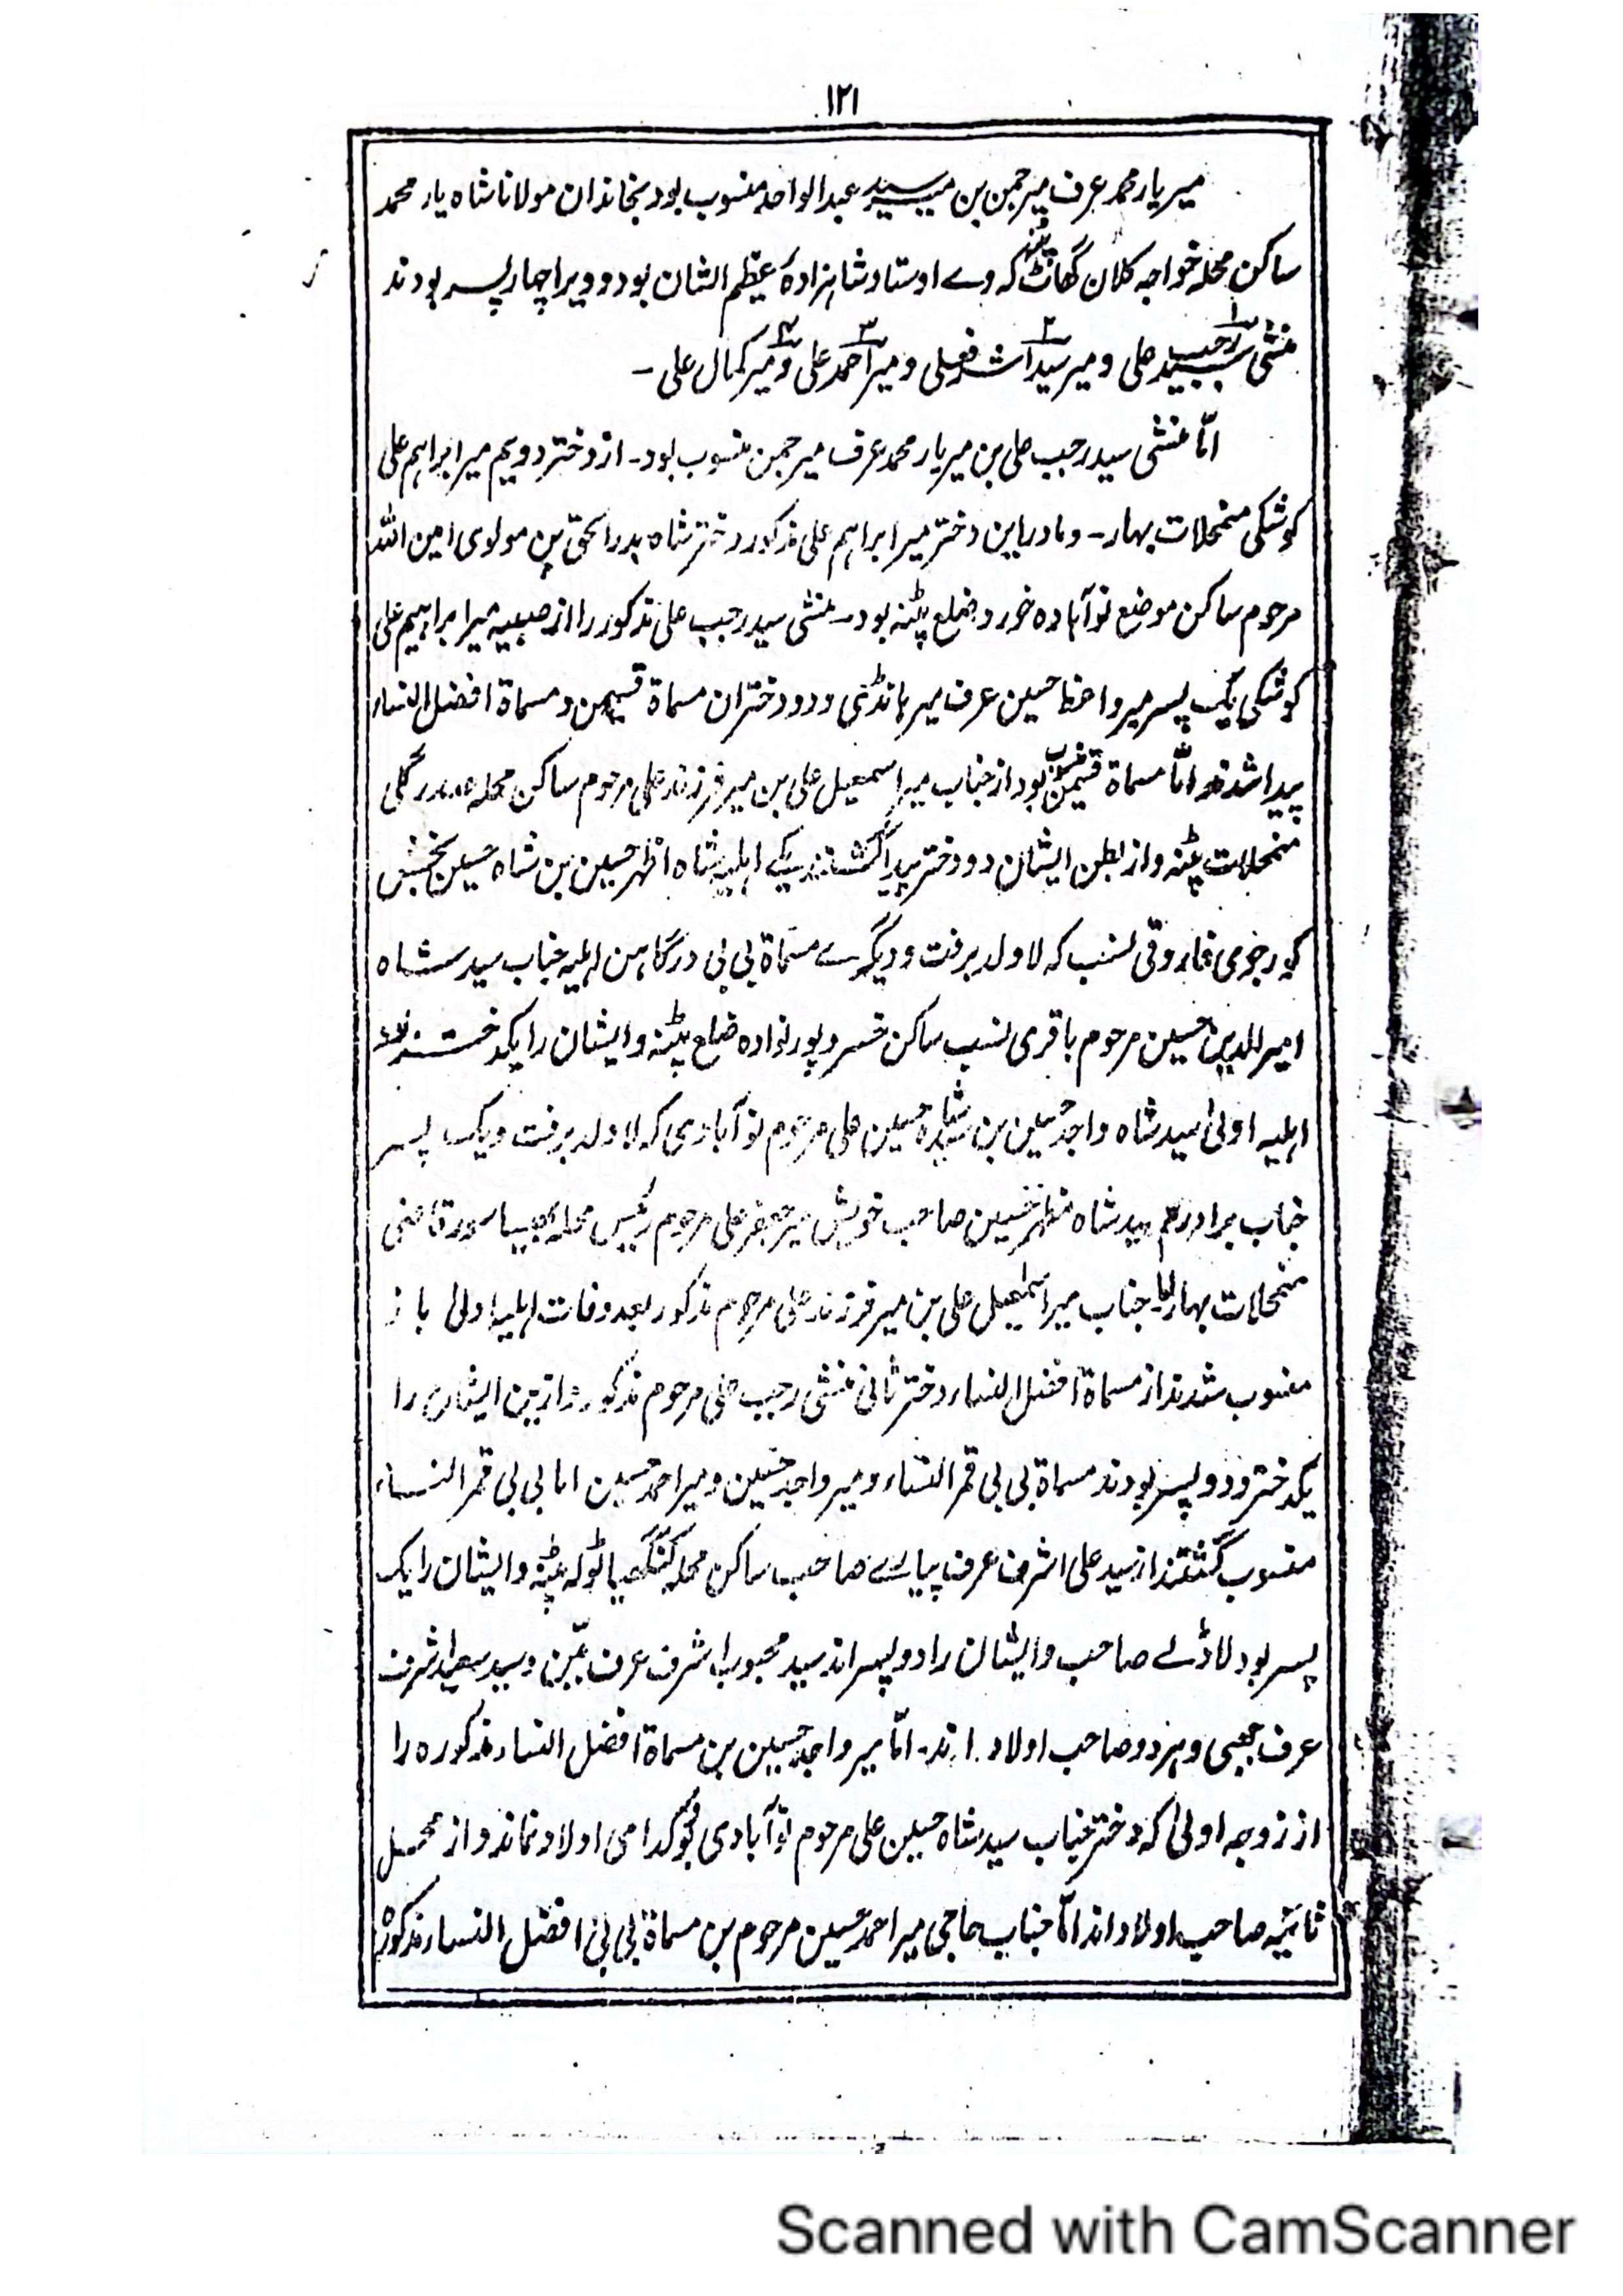 ۱۲۱
میر یار محمد عرف میر جمن بن میر سید عبدالواحد منسوب بود بخاندان مولانا شاہ یار محمد
ساکن محلہ خواجہ کلان گھاٹ پٹنہ کہ وے اوستاد شاہزادۂ عظیم الشان بود و ویرا چہار پسر بودند
منشی سید رجب علی و میر سید اشرف علی و میر احمد علی و میر کمال علی ۔
امّا منشی سید رجب علی بن میر یار محمد عرف میر جمن منسوب بود ۔ از دختر دویم میر ابراہیم علی
کوشکی منمحلات بہار ۔ و مادر این دختر میر ابراہیم علی مذکور دختر شاہ بدر الحق بن مولوی امین اللہ
مرحوم ساکن موضع نوآبادہ خورد ضلع پٹنہ بود ۔ منشی سید رجب علی مذکور را از صبیہ میر ابراہیم علی
کوشکی یک پسر میر واعظ حسین عرف میر ہانڈی و دو دختران مسماۃ قسیمن و مسماۃ افضل النساء
پیدا شدند امّا مسماۃ قسیمن منسوب بود از جناب میر اسمعیل علی بن میر فرزند علی مرحوم ساکن محلہ گلی
منمحلات پٹنہ و از بطن ایشان دو دختر پیدا گشتند یکے اہلیہ شاہ اظہر حسین بن شاہ حسین بخش
کجرجوی فاروقی نسب کہ لاولد برفت و دیگرے مسماۃ بی بی درگاہن اہلیہ جناب سید شاہ
امیر الدین حسین مرحوم باقری نسب ساکن خسروپور نوادہ ضلع پٹنہ و ایشان را یکدختر شد
اہلیہ اولیٰ سید شاہ واجد حسین بن سید شاہ حسین علی مرحوم نوآبادی کہ لاولد برفت و یک پسر
جناب برادرم سید شاہ مظہر حسین صاحب خویش میر جعفر علی مرحوم رئیس محلہ قاضی
منمحلات بہار امّا جناب میر اسمٰعیل علی بن میر فرزند علی مرحوم مذکور بعد وفات اہلیہ اولیٰ باز
منسوب شدند از مسماۃ افضل النساء دختر ثانی منشی رجب علی مرحوم مذکور و ازین ایشان را
یکدختر و دو پسر بودند مسماۃ بی بی قمر النساء و میر واجد حسین و میر احمد حسین اما بی بی قمر النساء
منسوب گشتند از سید علی اشرف عرف پیارے صاحب ساکن محلہ گنگھیا ٹولہ پٹنہ و ایشان را یک
پسر بود لاڈلے صاحب و ایشان را دو پسر اند سید محبوب اشرف عرف بمّن و سید سعید اشرف
عرف چھبی و ہر دو صاحب اولاد اند ۔ امّا میر واجد حسین بن مسماۃ افضل النساء مذکورہ را
از زوجہ اولیٰ کہ دختر جناب سید شاہ حسین علی مرحوم نوآبادی بود کدامی اولاد نماند و از محل
ثانیہ صاحب اولاد اند امّا جناب حاجی میر احمد حسین مرحوم بن مسماۃ بی بی افضل النساء مذکورہ
Scanned with CamScanner